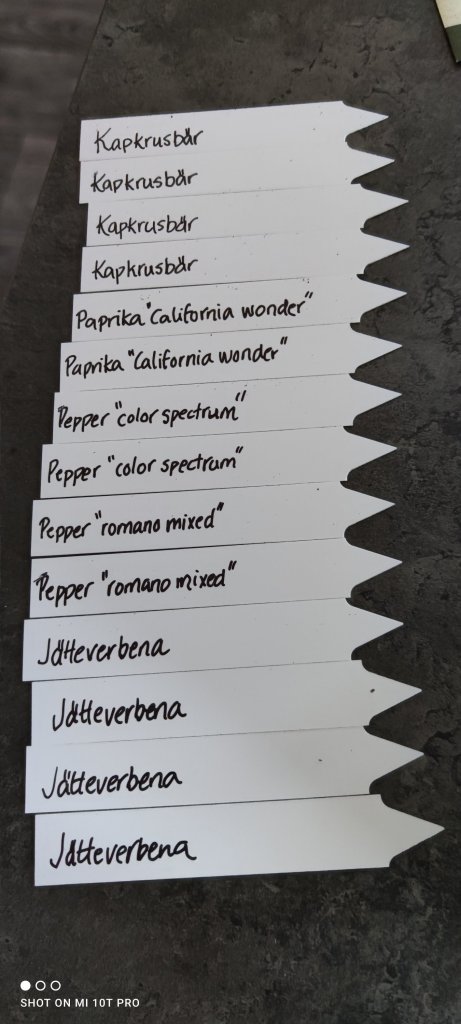 Kapkrusbär
Kapkrusbär
Kapkrusbär
Kapkrusbär
Paprika "California wonder"
Paprika "California wonder"
Pepper "color spectrum"
Pepper "color spectrum"
Pepper "romano mixed"
Pepper "romano mixed"
Jätteverbena
Jätteverbena
Jätteverbena
Jätteverbena
SHOT ON MI 10T PRO